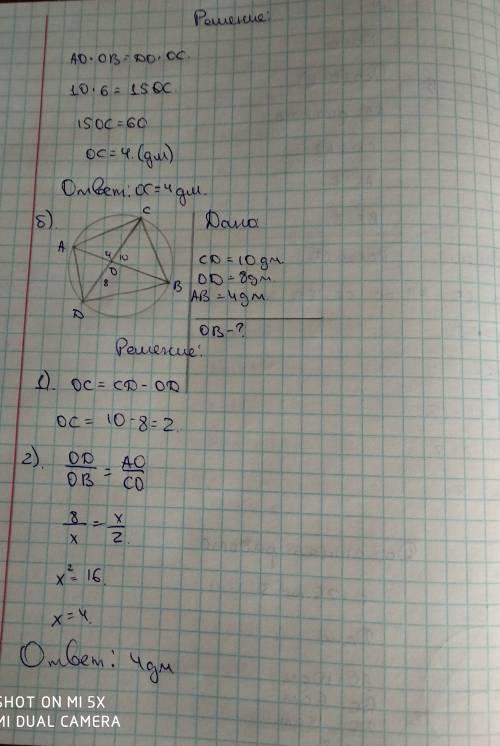 Решение:
AO·OB=DO·OC.
10·6=15OC
15OC=60
OC=4.(дм)
Ответ: OC=4дм.
б).
C
A
4 10
O
8
B
D
Дано
CD=10дм
OD=8дм
AB=4дм
OB-?
Решение:
1). OC=CD-OD
OC= 10-8=2.
2). OD/OB = AO/CO
8/x = x/2.
x²=16.
x=4.
Ответ: 4дм
SHOT ON MI 5X
MI DUAL CAMERA